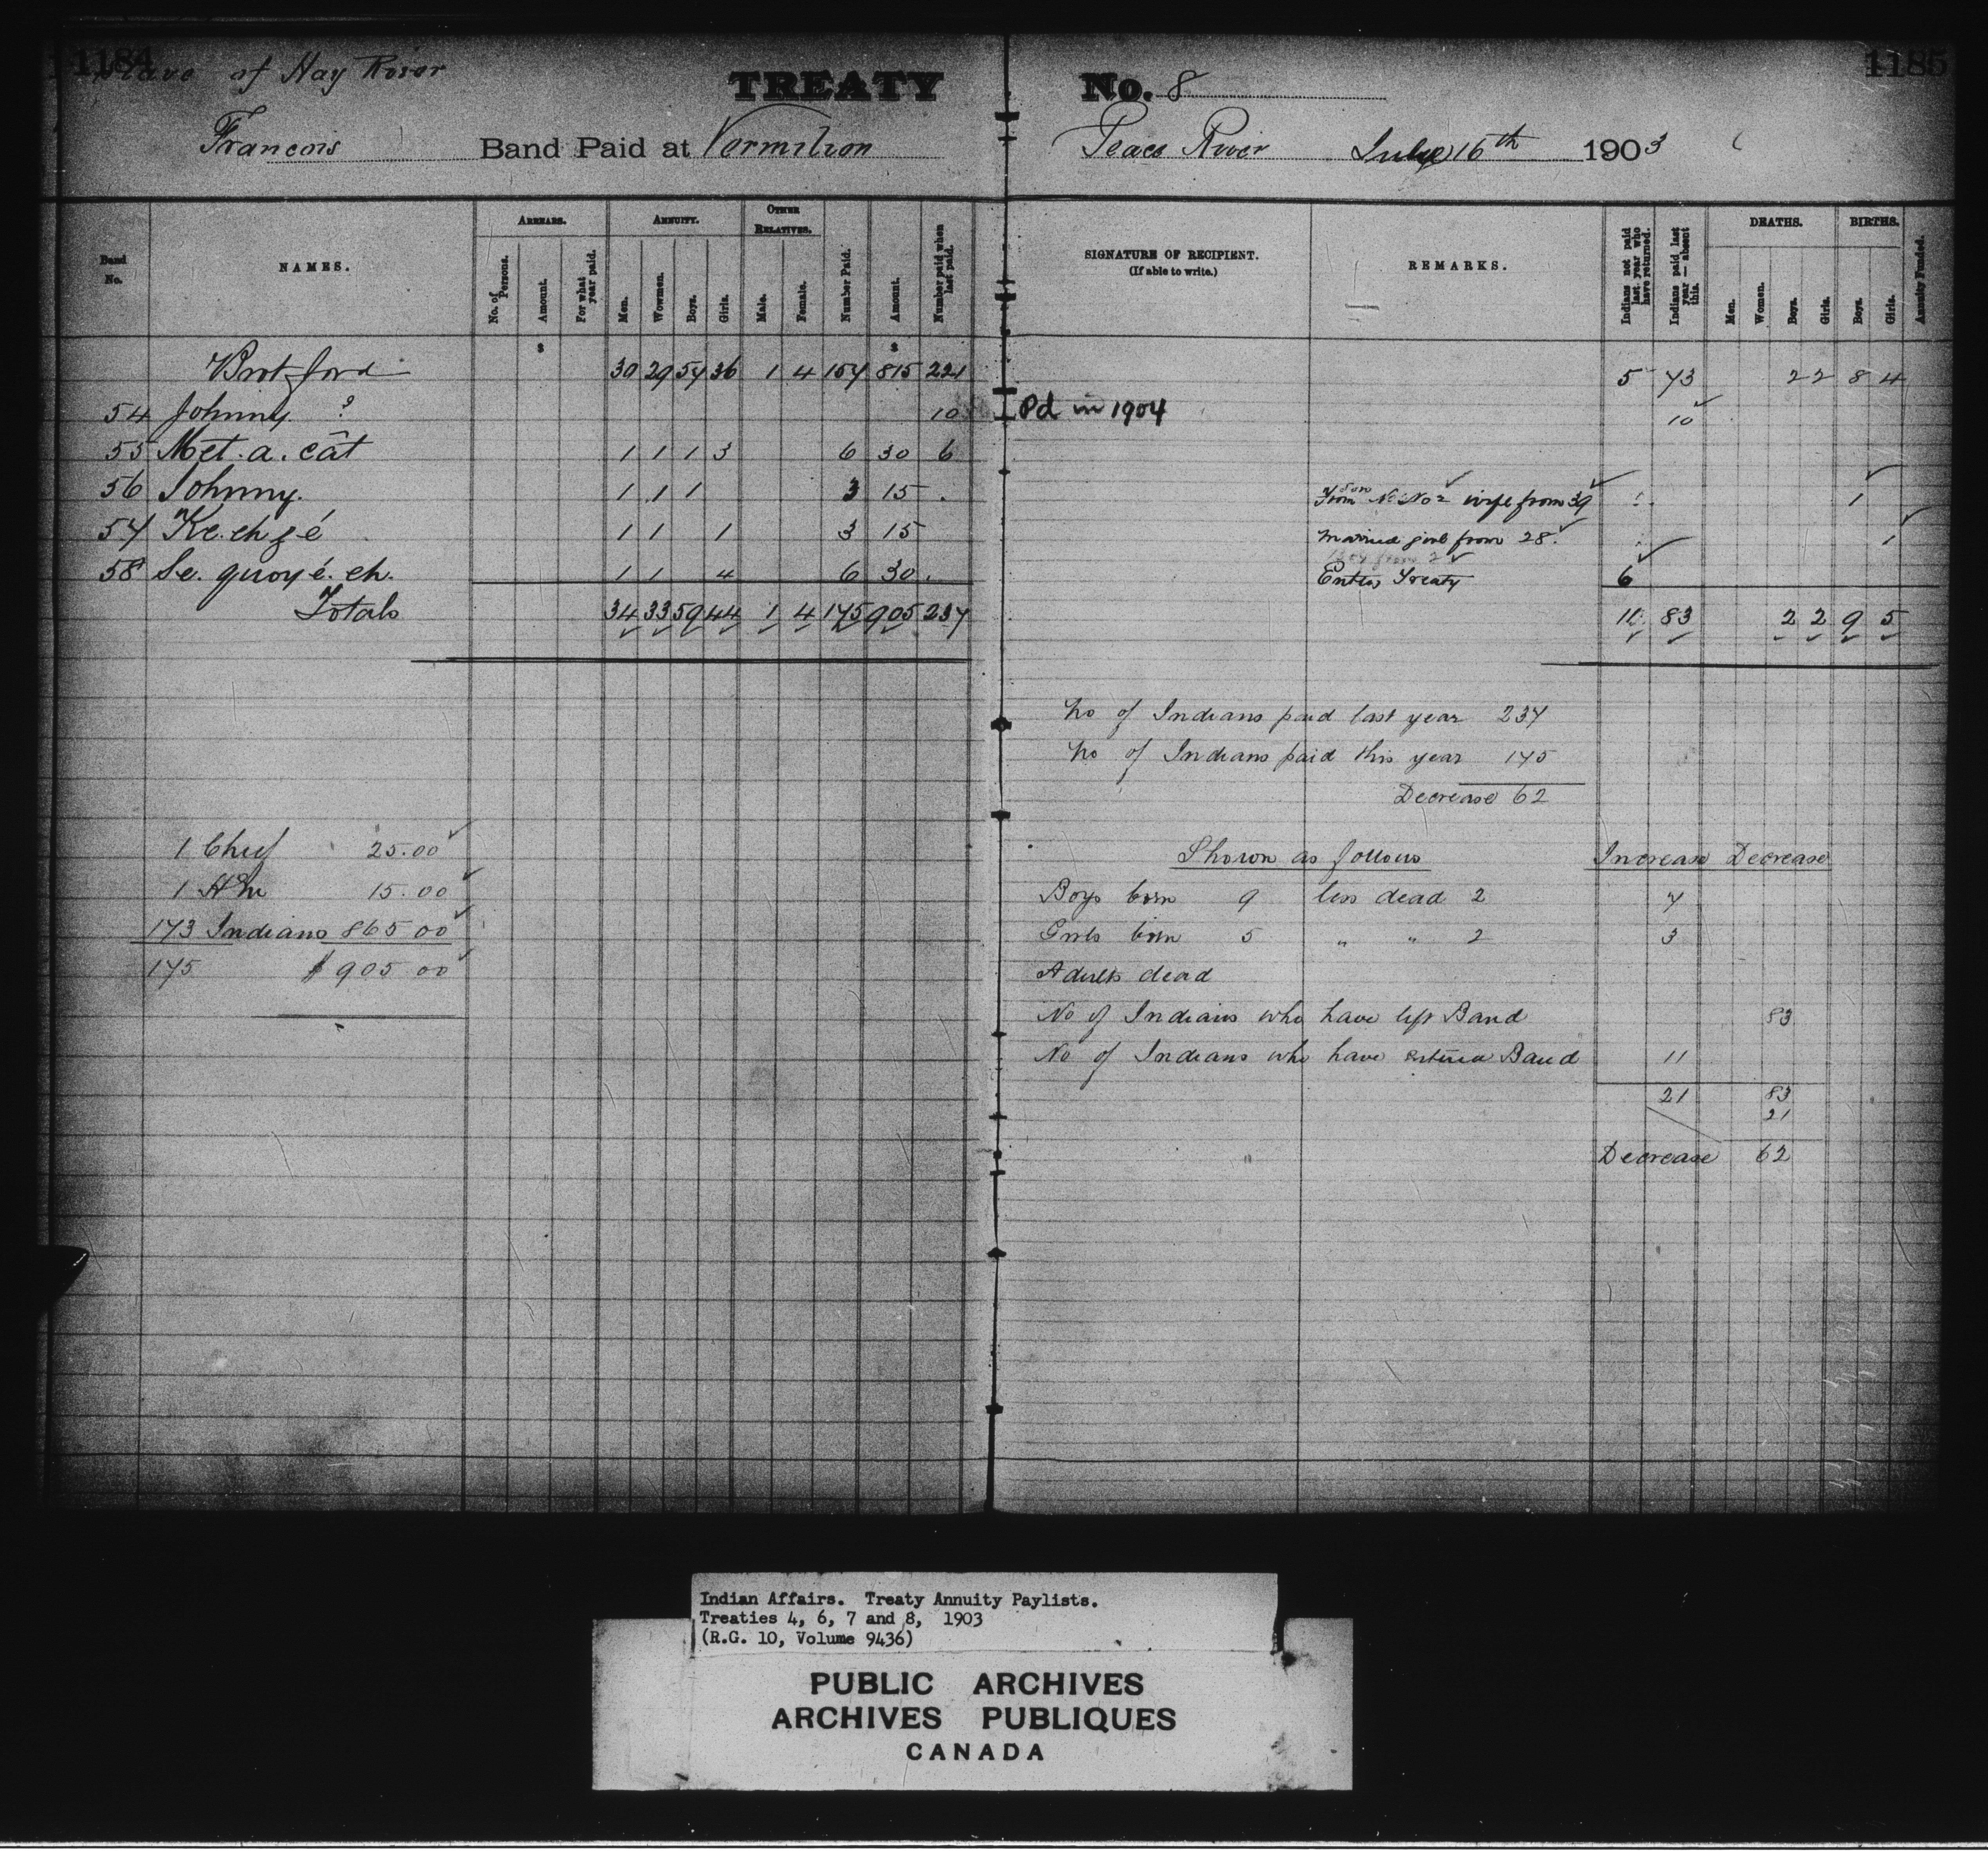 1184 1185
Slave of Hay River TREATY No. 8
Francois Band Paid at Vermilion Peace River July 16th 1903
Band No. NAMES. ARREARS. ANNUITY. OTHER RELATIVES. Number Paid. Amount. Number paid when last paid. SIGNATURE OF RECIPIENT. (If able to write.) REMARKS. Indians not paid last year who have returned. Indians paid last year — absent this. DEATHS. BIRTHS. Annuity Funded.
No. of Persons. Amount. For what year paid. Men. Wowmen. Boys. Girls. Male. Female. Men. Women. Boys. Girls. Boys. Girls.
$ $
Brot ford 30 29 57 36 1 4 157 815 221 5 73 2 2 8 4
54 Johnny ? 10 Pd in 1904 10
55 Met. a. cât 1 1 1 3 6 30 6
56 Johnny. 1 1 1 3 15 . Son from No 2 wife from 39 1
57 Ke. eh z é 1 1 1 3 15 Married girl from 28. 1
58 Se. quoy é. eh. 1 1 4 6 30 . Enters Treaty 6
Totals 34 33 59 44 1 4 175 905 237 11 83 2 2 9 5
No of Indians paid last year 237
No of Indians paid this year 175
Decrease 62
1 Chief 25.00
1 H'm 15.00
173 Indians 865 00
175 $ 905 00
Shown as follows Increase Decrease
Boys born 9 less dead 2 7
Girls born 5 " " 2 3
Adults dead
No of Indians who have left Band 83
No of Indians who have entered Band 11
21 83
21
Decrease 62
Indian Affairs. Treaty Annuity Paylists.
Treaties 4, 6, 7 and 8, 1903
(R.G. 10, Volume 9436)
PUBLIC ARCHIVES
ARCHIVES PUBLIQUES
CANADA